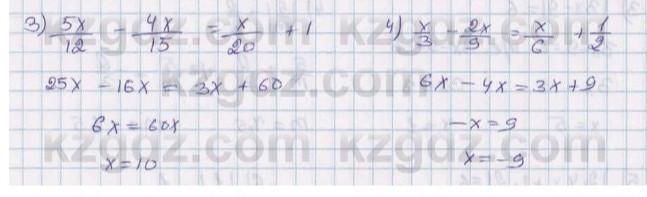 3) 5x/12 - 4x/15 = x/20 + 1
25x - 16x = 3x + 60
6x = 60x
x = 10
4) x/3 - 2x/9 = x/6 + 1/2
6x - 4x = 3x + 9
-x = 9
x = -9
kzgdz.com kzgdz.com
kzgdz.com kzgdz.com